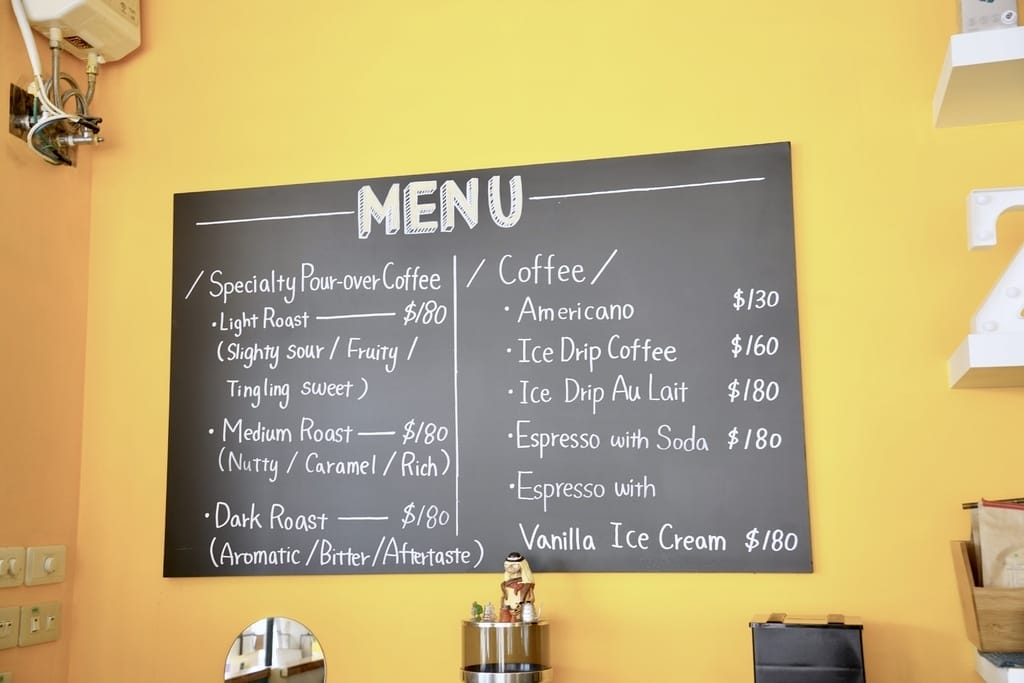 MENU
/ Specialty Pour-over Coffee
· Light Roast —— $180
(Slighty sour / Fruity /
Tingling sweet)
· Medium Roast — $180
(Nutty / Caramel / Rich)
· Dark Roast — $180
(Aromatic / Bitter / Aftertaste)
/ Coffee /
· Americano $130
· Ice Drip Coffee $160
· Ice Drip Au Lait $180
· Espresso with Soda $180
· Espresso with
Vanilla Ice Cream $180